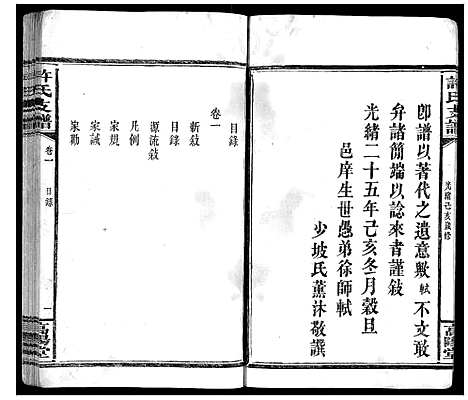 許氏支譜
光緒己亥續修
高陽堂
卽譜以著代之遺意歟軾不文敢
弁諸簡端以諗來者謹敍
光緒二十五年己亥冬月穀旦
邑庠生世愚弟徐師軾
少坡氏薰沐敬譔
目錄
卷一
新敍
目錄
源流敍
凡例
家規
家誡
家勸
許氏支譜
卷一
目錄
一
高陽堂